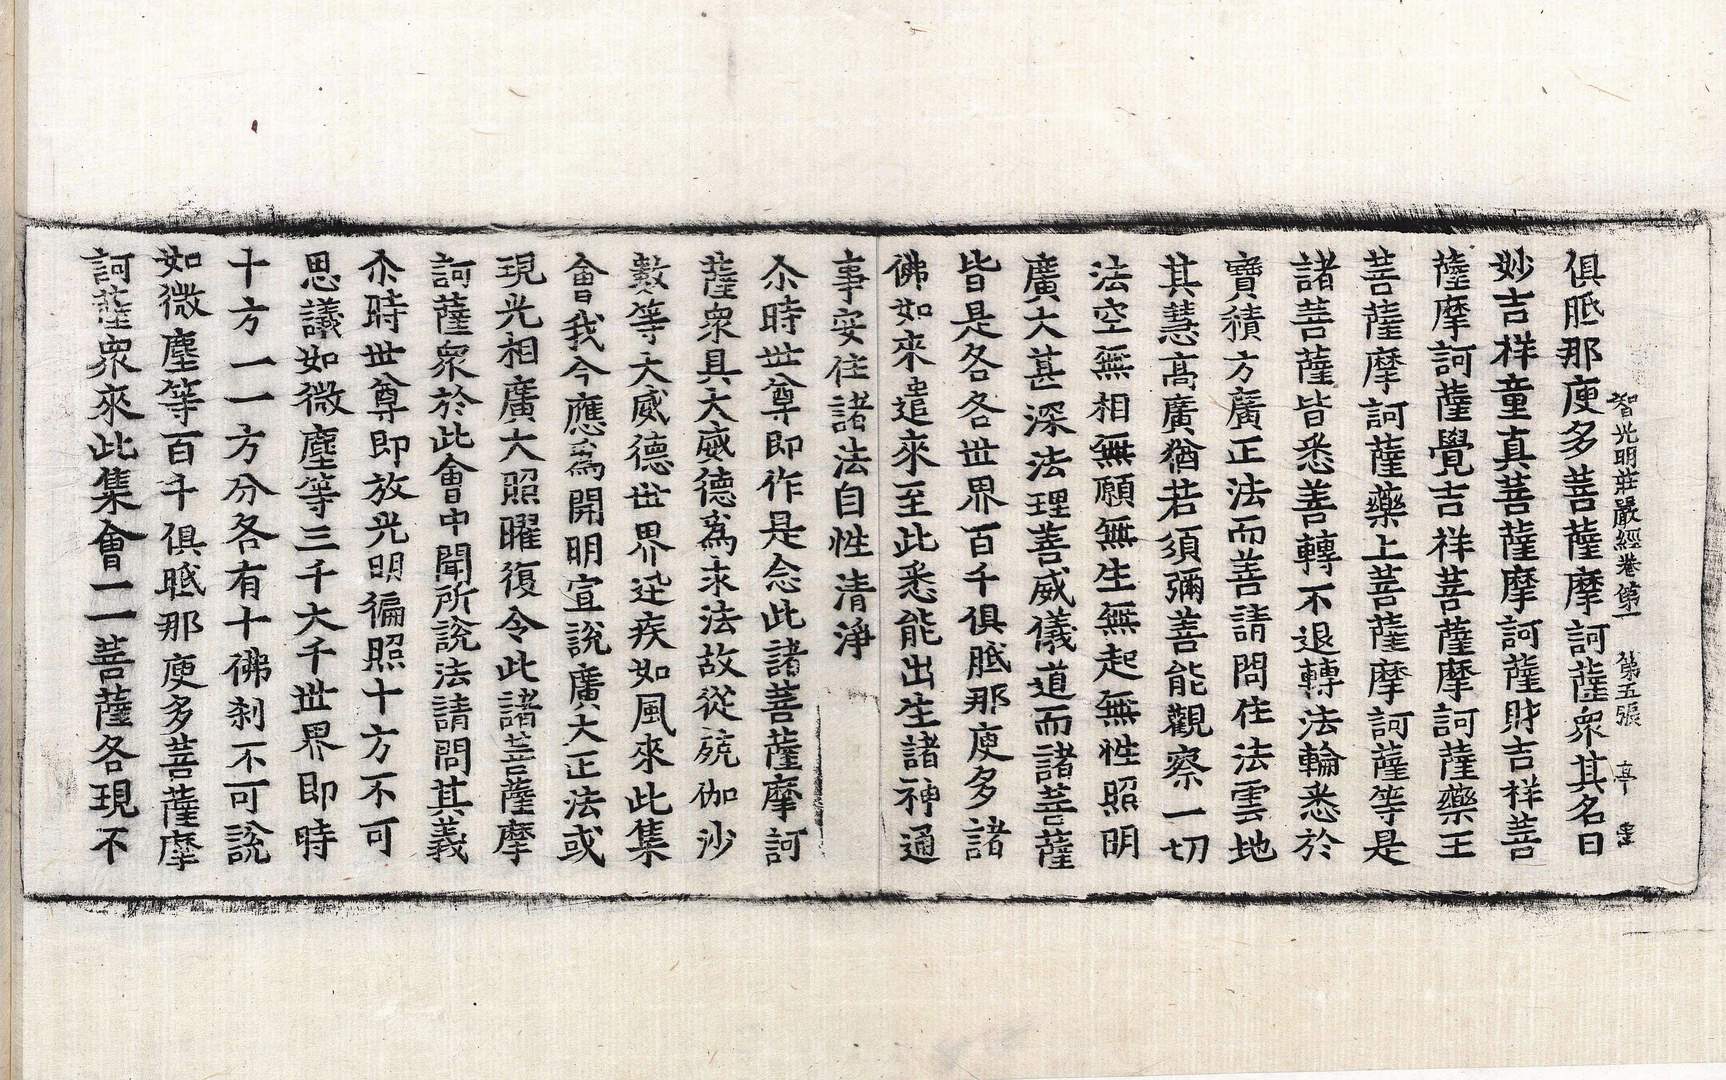 智光明莊嚴經卷第一 第五張
俱胝那庾多菩薩摩訶薩衆其名曰
妙吉祥童真菩薩摩訶薩財吉祥菩
薩摩訶薩覺吉祥菩薩摩訶薩藥王
菩薩摩訶薩藥上菩薩摩訶薩等是
諸菩薩皆悉善轉不退轉法輪悉於
寶積方廣正法而善請問住法雲地
其慧高廣猶若須彌善能觀察一切
法空無相無願無生無起無性照明
廣大甚深法理善威儀道而諸菩薩
皆是各各世界百千俱胝那庾多諸
佛如來遣來至此悉能出生諸神通
事安住諸法自性清淨
尒時世尊即作是念此諸菩薩摩訶
薩衆具大威德爲求法故從殑伽沙
數等大威德世界迅疾如風來此集
會我今應爲開明宣說廣大正法或
現光相廣大照曜復令此諸菩薩摩
訶薩衆於此會中聞所說法請問其義
尒時世尊即放光明徧照十方不可
思議如微塵等三千大千世界即時
十方一一方分各有十佛刹不可說
如微塵等百千俱胝那庾多菩薩摩
訶薩衆來此集會一一菩薩各現不